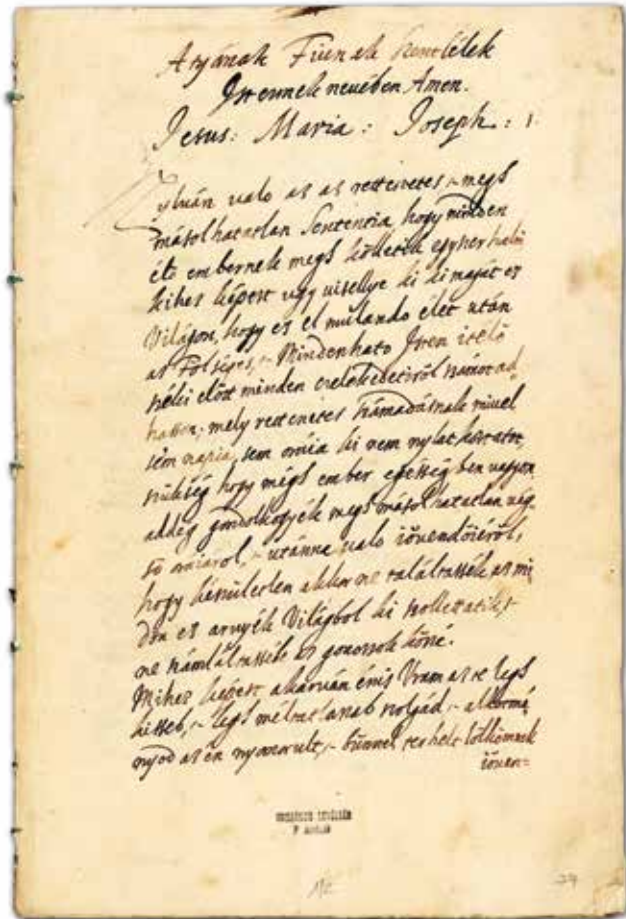 Atyának Fiunak Szentlélek
Istennek nevében Amen.
Jesus: Maria: Joseph: 1.
Nyluán ualo az az rettenetes, megh
másolhatatlan Sententia, hogy minden
élö embernek megh kölletik egyszer halni
kihez képest ugy uisellye ki ki magát ez
Világon, hogy ez el mulando élet után
az Fölséges, Mindenhato Isten itélö
széki elött minden cselekedetiröl számot ad-
hasson; mely rettenetes számadásnak miuel
sem napia, sem oráia ki nem nylatkoztatot
szükség hogy mégh ember egésségben uagyon
addég gondolkogyék megh másolhatatlan uég-
sö oráiárol, utánna ualo iöuendöiéröl,
hogy készületlen akkor ne találtassék az mi-
dön ez arnyék Világbol ki szollettatik,
ne számláltassék az gonoszok közzé.
Mihez képest akaruán énis Vram az te legh
kisseb, legh méltatlanab szolgád, alkotmá-
nyod az én nyomorult, bünnel terhelt lölkömnek
iöuen=
ORSZÁGOS LEVÉLTÁR